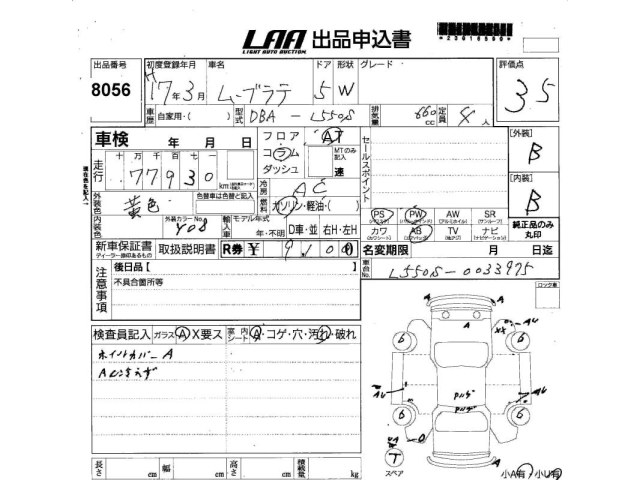 LAA 出品申込書
LIGHT AUTO AUCTION
*23016590*
出品番号 初度登録年月 車名 ドア 形状 グレード 評価点
8056 H17年3月 ムーブラテ 5 W 3.5
車歴 自家用・( ) 型式 DBA - L550S 排気量 660 cc 定員 4人
車検 年 月 日 フロア AT
コラム MTのみ記入
ダッシュ 速
走行 十 万 千 百 十 一
77930 km
冷房 AC
外装色 黄色 色替車は色替と記入 燃料 ガソリン・軽油・( )
内装色 外装カラーNo. Y08 輸入車 モデル年式 年・不明 D車・並 右H・左H
新車保証書 取扱説明書 R券 ¥ 9,100
ディーラー捺印あるもの
セールスポイント
[外装] B
[内装] B
PS PW AW SR
カワ AB TV ナビ
純正品のみ丸印
名変期限 月 日迄
車台No. L550S-0033975
注意事項 後日品【 】
不具合箇所等
ロック車
検査員記入 ガラス A X要ス 室内シート A・コゲ・穴・汚れ・破れ
ホイルカバーA
A
A
AU
XX
6 6
AU
6 6
T
スペア
小A有 小U有
長さ cm 幅 cm 高さ cm 積載量 kg